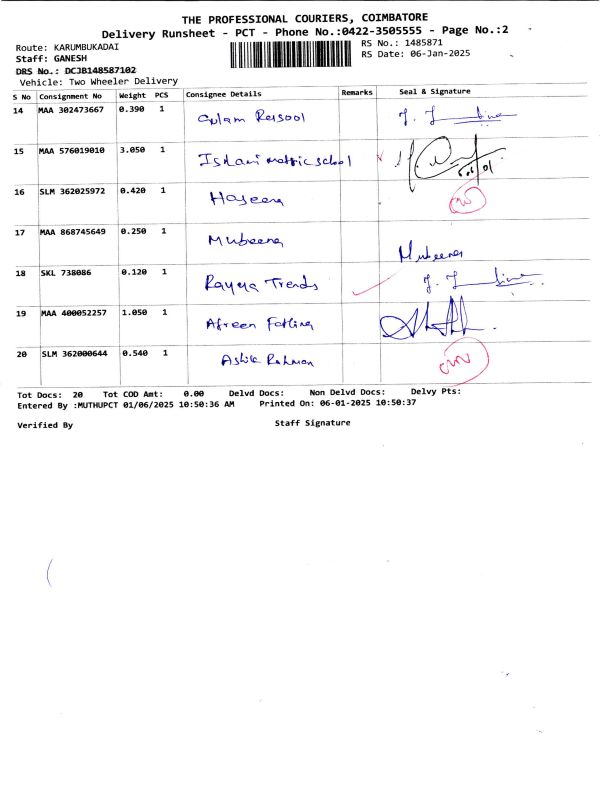 THE PROFESSIONAL COURIERS, COIMBATORE
Delivery Runsheet - PCT - Phone No.:0422-3505555 - Page No.:2
Route: KARUMBUKADAI RS No.: 1485871
Staff: GANESH RS Date: 06-Jan-2025
DRS No.: DCJB148587102
Vehicle: Two Wheeler Delivery
S No Consignment No Weight PCS Consignee Details Remarks Seal & Signature
14 MAA 302473667 0.390 1 Gulam Rasool
15 MAA 576019010 3.050 1 Islami matric school
16 SLM 362025972 0.420 1 Haseena
17 MAA 868745649 0.250 1 Mubeena Mubeena
18 SKL 738086 0.120 1 Rayyna Trends
19 MAA 400052257 1.050 1 Afreen Fatima
20 SLM 362000644 0.540 1 Ashik Rahman
Tot Docs: 20 Tot COD Amt: 0.00 Delvd Docs: Non Delvd Docs: Delvy Pts:
Entered By :MUTHUPCT 01/06/2025 10:50:36 AM Printed On: 06-01-2025 10:50:37
Verified By Staff Signature